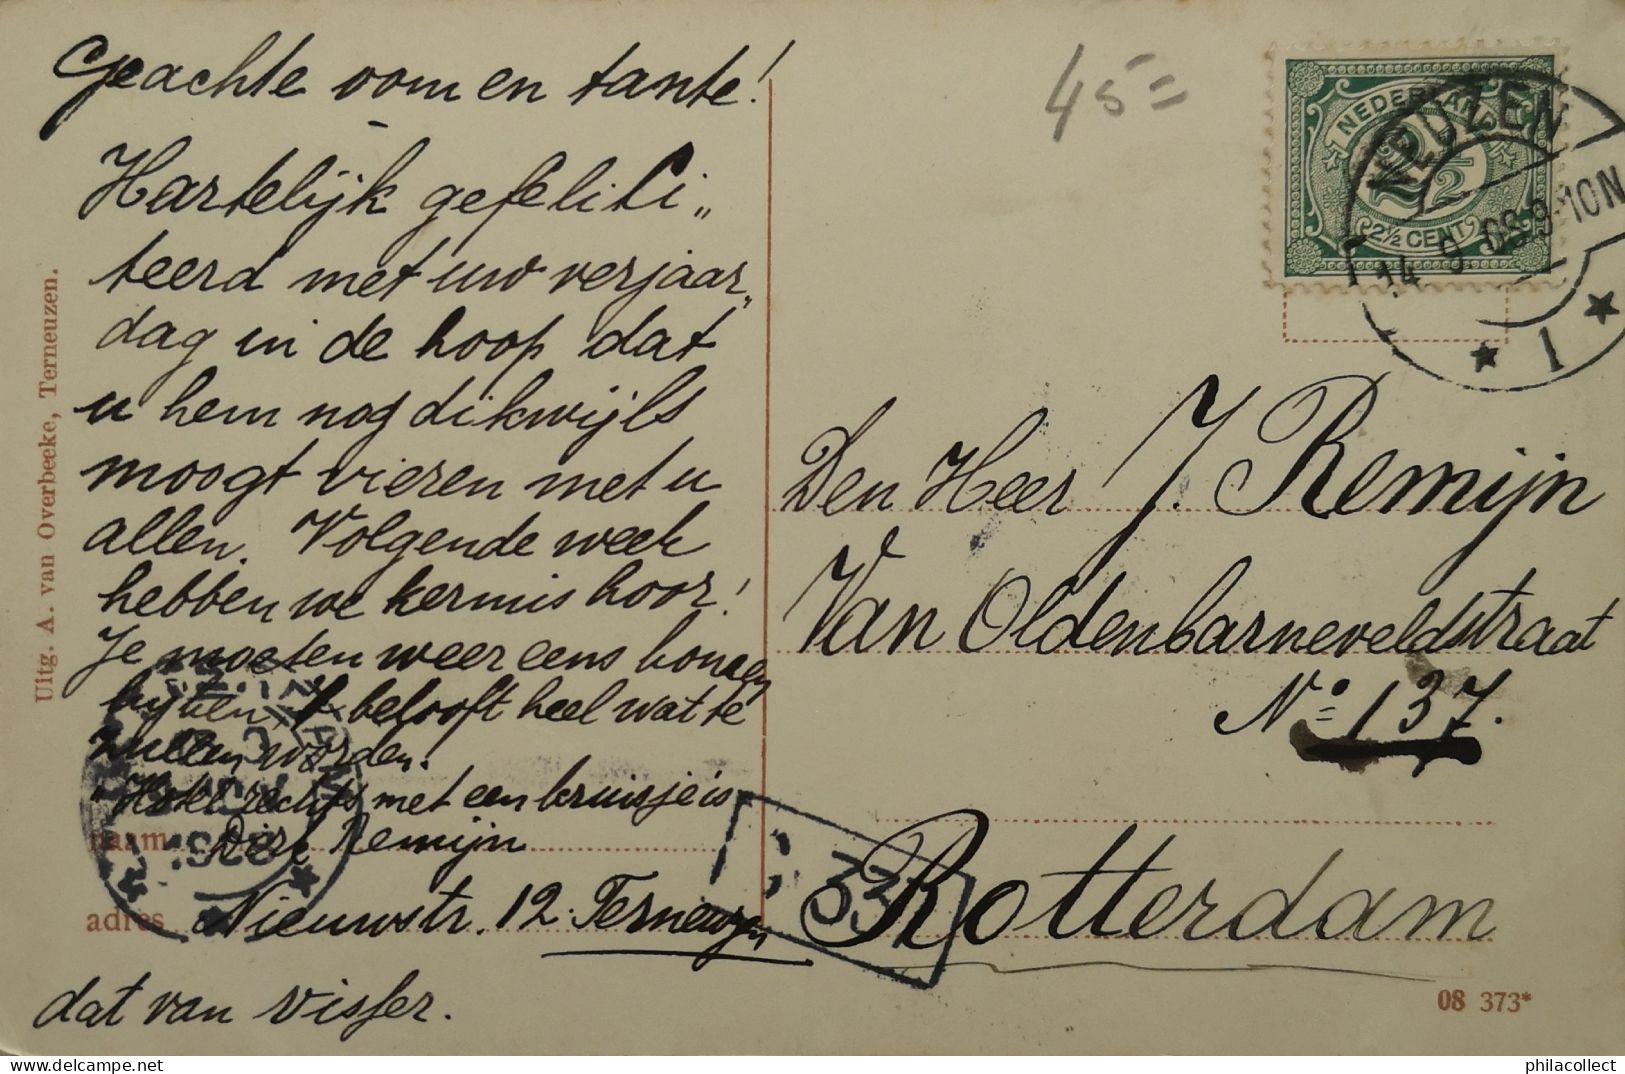 Geachte oom en tante!
Hartelijk gefelici„
teerd met uw verjaar„
dag in de hoop dat
u hem nog dikwijls
moogt vieren met u
allen. Volgende week
hebben we kermis hoor!
Je moeten weer eens komen
kijken, 't belooft heel wat te
zullen worden.
"Hotel rechts met een kruisje is
naam Dirk Remijn
adres Nieuwstr. 12. Terneuzen
dat van Visser.
Uitg. A. van Overbeeke, Terneuzen.
45=
NEDERLAND
2½
2½ CENT
NEUZEN
14 9.08.9-10N
1
Den Heer J. Remijn
Van Oldenbarneveldstraat
No 137.
Rotterdam
33
08 373*
philacollect